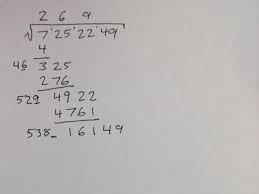 2 6 9
√7'25'22'49
4
46 325
276
529 4922
4761
538_ 16149